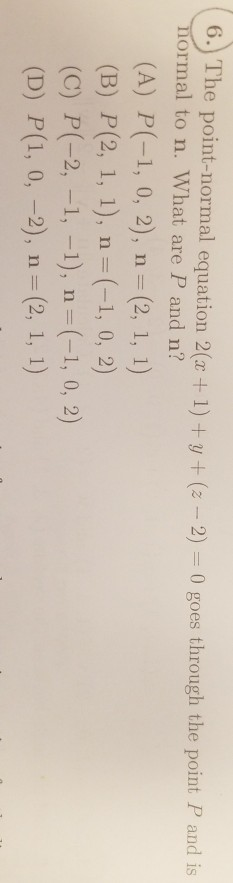 6. The point-normal equation 2(x + 1) + y + (z − 2) = 0 goes through the point P and is
normal to n. What are P and n?
(A) P(−1, 0, 2), n = (2, 1, 1)
(B) P(2, 1, 1), n = (−1, 0, 2)
(C) P(−2, −1, −1), n = (−1, 0, 2)
(D) P(1, 0, −2), n = (2, 1, 1)